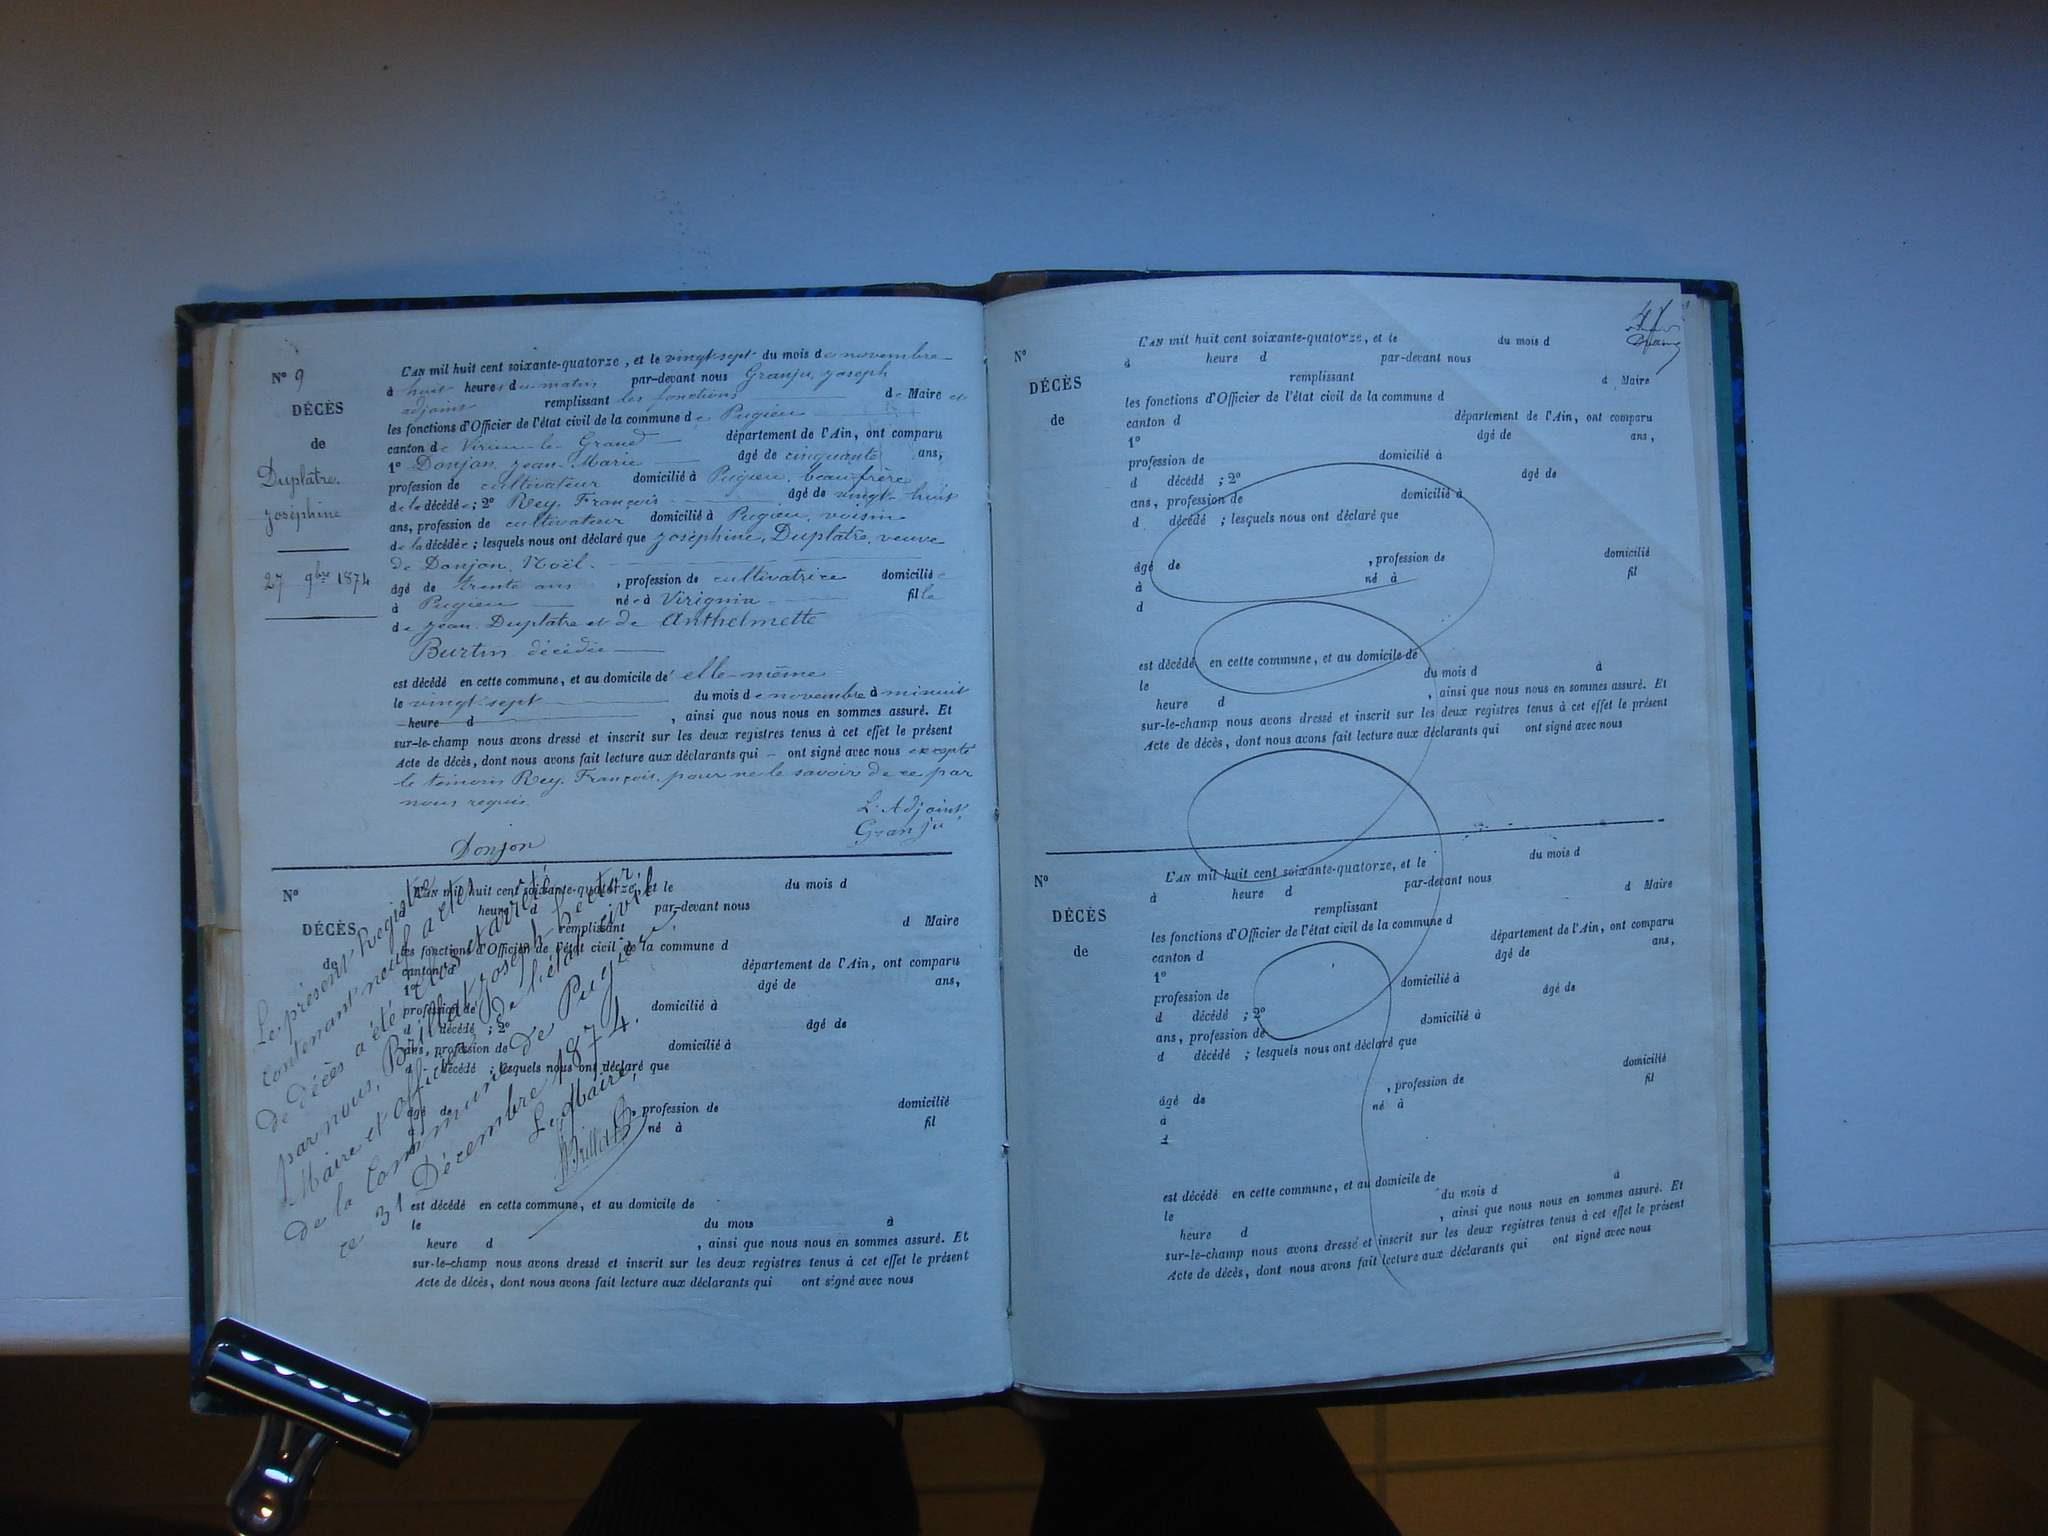 N° 9
DÉCÈS
de
Duplatre
Joséphine
27 9bre 1874
L'AN mil huit cent soixante-quatorze, et le vingt-sept du mois de novembre
à huit heures du matin par-devant nous Granju, Joseph
adjoint remplissant les fonctions de Maire et
les fonctions d'Officier de l'état civil de la commune de Pugieu
canton de Virieu-le-Grand département de l'Ain, ont comparu
1° Donjon, Jean-Marie âgé de cinquante ans,
profession de cultivateur domicilié à Pugieu, beau-frère
de la décédée ; 2° Rey, François âgé de vingt-huit
ans, profession de cultivateur domicilié à Pugieu, voisin
de la décédée ; lesquels nous ont déclaré que Joséphine, Duplatre, veuve
de Donjon, Noël.
âgé de trente ans , profession de cultivatrice domicilié e
à Pugieu né e à Virignin fille
de Jean Duplatre et de Anthelmette
Burtin décédée
est décédé en cette commune, et au domicile de elle-même
le vingt-sept du mois de novembre à minuit
heure d , ainsi que nous nous en sommes assuré. Et
sur-le-champ nous avons dressé et inscrit sur les deux registres tenus à cet effet le présent
Acte de décès, dont nous avons fait lecture aux déclarants qui ont signé avec nous excepté
le témoin Rey, François, pour ne le savoir de ce par
nous requis.
L'Adjoint
Granju
Donjon
N°
DÉCÈS
de
L'AN mil huit cent soixante-quatorze, et le du mois d
à heure d par-devant nous
remplissant d Maire
les fonctions d'Officier de l'état civil de la commune d
canton d département de l'Ain, ont comparu
1° âgé de ans,
profession de domicilié à
d décédé ; 2° âgé de
ans, profession de domicilié à
d décédé ; lesquels nous ont déclaré que
âgé de , profession de domicilié
à né à fil
est décédé en cette commune, et au domicile de
le du mois à
heure d , ainsi que nous nous en sommes assuré. Et
sur-le-champ nous avons dressé et inscrit sur les deux registres tenus à cet effet le présent
Acte de décès, dont nous avons fait lecture aux déclarants qui ont signé avec nous
Le présent Registre
contenant neuf actes
de décès a été clos et arrêté
par nous, Brillat Joseph Hector,
Maire et officier de l'état civil
de la Commune de Pugieu,
ce 31 Décembre 1874.
Le Maire,
Brillat
41
N°
DÉCÈS
de
L'AN mil huit cent soixante-quatorze, et le du mois d
à heure d par-devant nous
remplissant d Maire
les fonctions d'Officier de l'état civil de la commune d
canton d département de l'Ain, ont comparu
1° âgé de ans,
profession de domicilié à
d décédé ; 2° âgé de
ans, profession de domicilié à
d décédé ; lesquels nous ont déclaré que
âgé de , profession de domicilié
à né à fil
d
est décédé en cette commune, et au domicile de
le du mois d à
heure d , ainsi que nous nous en sommes assuré. Et
sur-le-champ nous avons dressé et inscrit sur les deux registres tenus à cet effet le présent
Acte de décès, dont nous avons fait lecture aux déclarants qui ont signé avec nous
N°
DÉCÈS
de
L'AN mil huit cent soixante-quatorze, et le du mois d
à heure d par-devant nous
remplissant d Maire
les fonctions d'Officier de l'état civil de la commune d
canton d département de l'Ain, ont comparu
1° âgé de ans,
profession de domicilié à
d décédé ; 2° âgé de
ans, profession de domicilié à
d décédé ; lesquels nous ont déclaré que
âgé de , profession de domicilié
à né à fil
d
est décédé en cette commune, et au domicile de
le du mois d à
heure d , ainsi que nous nous en sommes assuré. Et
sur-le-champ nous avons dressé et inscrit sur les deux registres tenus à cet effet le présent
Acte de décès, dont nous avons fait lecture aux déclarants qui ont signé avec nous